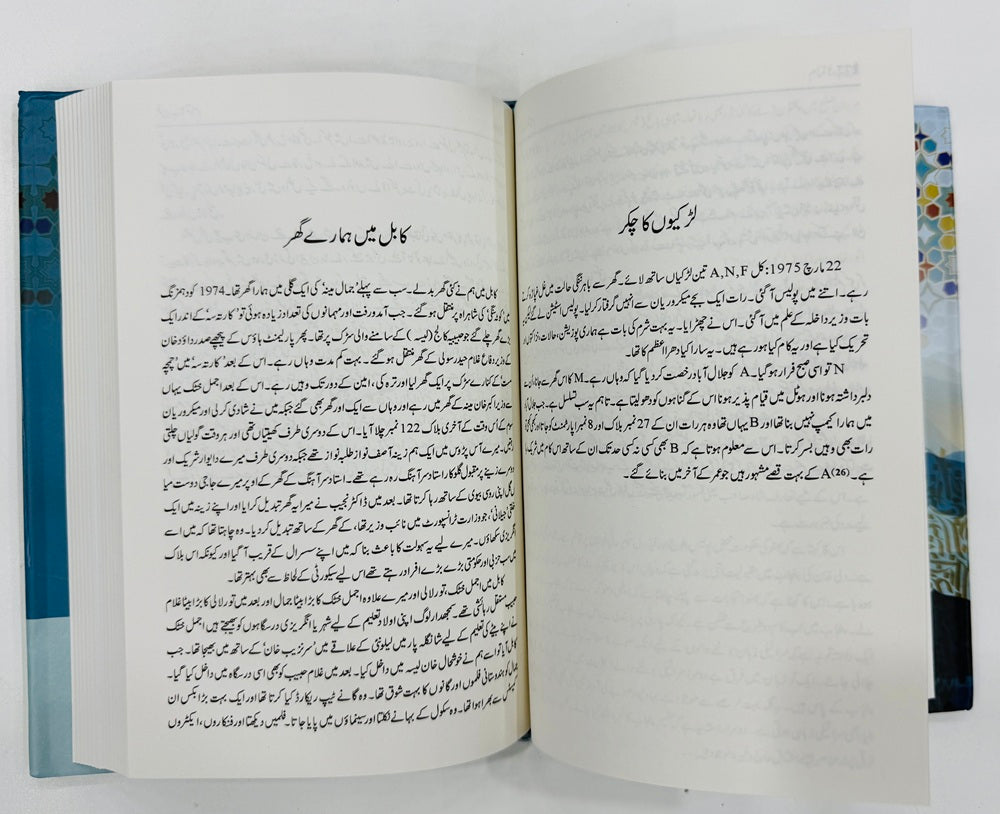 لڑکیوں کا چکر
22 مارچ 1975: کل A, N, F تین لڑکیاں ساتھ لائے۔ گھر سے باہر ننگی حالت میں غل غپاڑہ کر
رہے۔ اتنے میں پولیس آ گئی۔ رات ایک بجے میکروریان سے انہیں گرفتار کر لیا۔ پولیس سٹیشن لے گئے
بات وزیر داخلہ کے علم میں آ گئی۔ اس نے چھڑایا۔ یہ بہت شرم کی بات ہے ہماری پوزیشن، حالات،
تحریک کیا ہے اور یہ کام کیا ہو رہے ہیں۔ یہ سارا کیا دھرا اعظم کا تھا۔
N تو اسی صبح فرار ہو گیا۔ A کو جلال آباد رخصت کر دیا گیا کہ وہاں رہے۔ M کا اس گھر سے جانا
دلبرداشتہ ہونا اور ہوٹل میں قیام پذیر ہونا اس کے گناہوں کو دھو لیتا ہے۔ تاہم یہ سب تسلسل ہے۔ جب
میں ہمارا کیمپ نہیں بنا تھا اور B یہاں تھا وہ ہر رات ان کے 27 نمبر بلاک اور 8 نمبر اپارٹمنٹ کو جاتا
رات بھی وہیں بسر کرتا۔ اس سے معلوم ہوتا ہے کہ B بھی کسی نہ کسی حد تک ان کے ساتھ اس کام میں شریک
ہے۔ A (26) کے بہت قصے مشہور ہیں جو عمر کے آخر میں بنائے گئے۔
کابل میں ہمارے گھر
کابل میں ہم نے کئی گھر بدلے۔ سب سے پہلے 'جمال مینہ' کی ایک گلی میں ہمارا گھر تھا۔ 1974 کو دہمزنگ
کی شاہراہ پر منتقل ہو گئے۔ جب آمد و رفت اور مہمانوں کی تعداد زیادہ ہوئی تو 'کارتہ سہ' کے اندر ایک
گھر چلے گئے جو حبیبیہ کالج (لیسہ) کے سامنے والی سڑک پر تھا۔ پھر پارلیمنٹ ہاؤس کے پیچھے صدر داؤد خان
کے وزیر دفاع غلام حیدر رسولی کے گھر منتقل ہو گئے۔ بہت کم مدت وہاں رہے۔ اس کے بعد 'کارتہ سہ' میں 'چمچہ
مست' کے کنارے سڑک پر ایک گھر لیا اور ترہ کی، امین کے دور تک وہیں رہے۔ اس کے بعد اجمل خٹک یہاں
سے وزیر اکبر خان مینہ کے گھر میں رہے اور وہاں سے ایک اور گھر بھی گئے جبکہ میں نے شادی کر لی اور میکروریان
سوم کے اس وقت کے آخری بلاک 122 نمبر چلا آیا۔ اس کے دوسری طرف کھیتیاں تھی اور ہر وقت گولیاں چلتی
تھیں۔ میرے اس پڑوس میں ایک ہم زینہ آصف نواز طلبہ نواز تھے جبکہ دوسری طرف میرے دایوار شریک اور
دوسرے زینے پر مقبول گلوکار استاد سرآہنگ رہ رہے تھے۔ استاد سرآہنگ کے گھر کے اوپر میرے حاجی دوست میا
گل اپنی روسی بیوی کے ساتھ رہا کرتا تھا۔ بعد میں ڈاکٹر نجیب نے میرا یہ گھر تبدیل کرایا اور اپنے زینہ میں ایک
جیلانی، جو وزارت ٹرانسپورٹ میں نائب وزیر تھا، کے گھر کے ساتھ تبدیل کر دیا۔ وہ چاہتا تھا کہ میں اسے
انگریزی سکھاؤں۔ میرے لیے یہ سہولت کا باعث بنا کہ میں اپنے سسرال کے قریب آ گیا اور کیونکہ اس بلاک
میں سب حزبی اور حکومتی بڑے بڑے افراد رہتے تھے اس لیے سیکورٹی کے لحاظ سے بھی بہتر تھا۔
کابل میں اجمل خٹک، تور لالی اور میرے علاوہ اجمل خٹک کا بڑا بیٹا جمال اور بعد میں تور لالی کا بڑا بیٹا غلام
حبیب مستقل رہائشی تھے۔ سمجھدار لوگ اپنی اولاد تعلیم کے لیے شہر یا انگریزی درسگاہوں کو بھیجتے ہیں اجمل خٹک
نے اپنے بیٹے کی تعلیم کے لیے شانگلہ پار میں لیلونئی کے علاقے میں 'سرنزیب خان' کے ساتھ میں بھیجا تھا۔ جب
کابل آیا تو اسے ہم نے خوشحال خان لیسہ میں داخل کیا۔ بعد میں غلام حبیب کو بھی اسی درسگاہ میں داخل کیا گیا۔
جمال کو ہندوستانی فلموں اور گانوں کا بہت شوق تھا۔ وہ گانے ٹیپ ریکارڈ کیا کرتا تھا اور ایک بہت بڑا بکس ان
سے بھرا ہوا تھا۔ وہ سکول کے بہانے نکلتا اور سینماؤں میں پایا جاتا۔ فلمیں دیکھتا اور فنکاروں، ایکٹروں